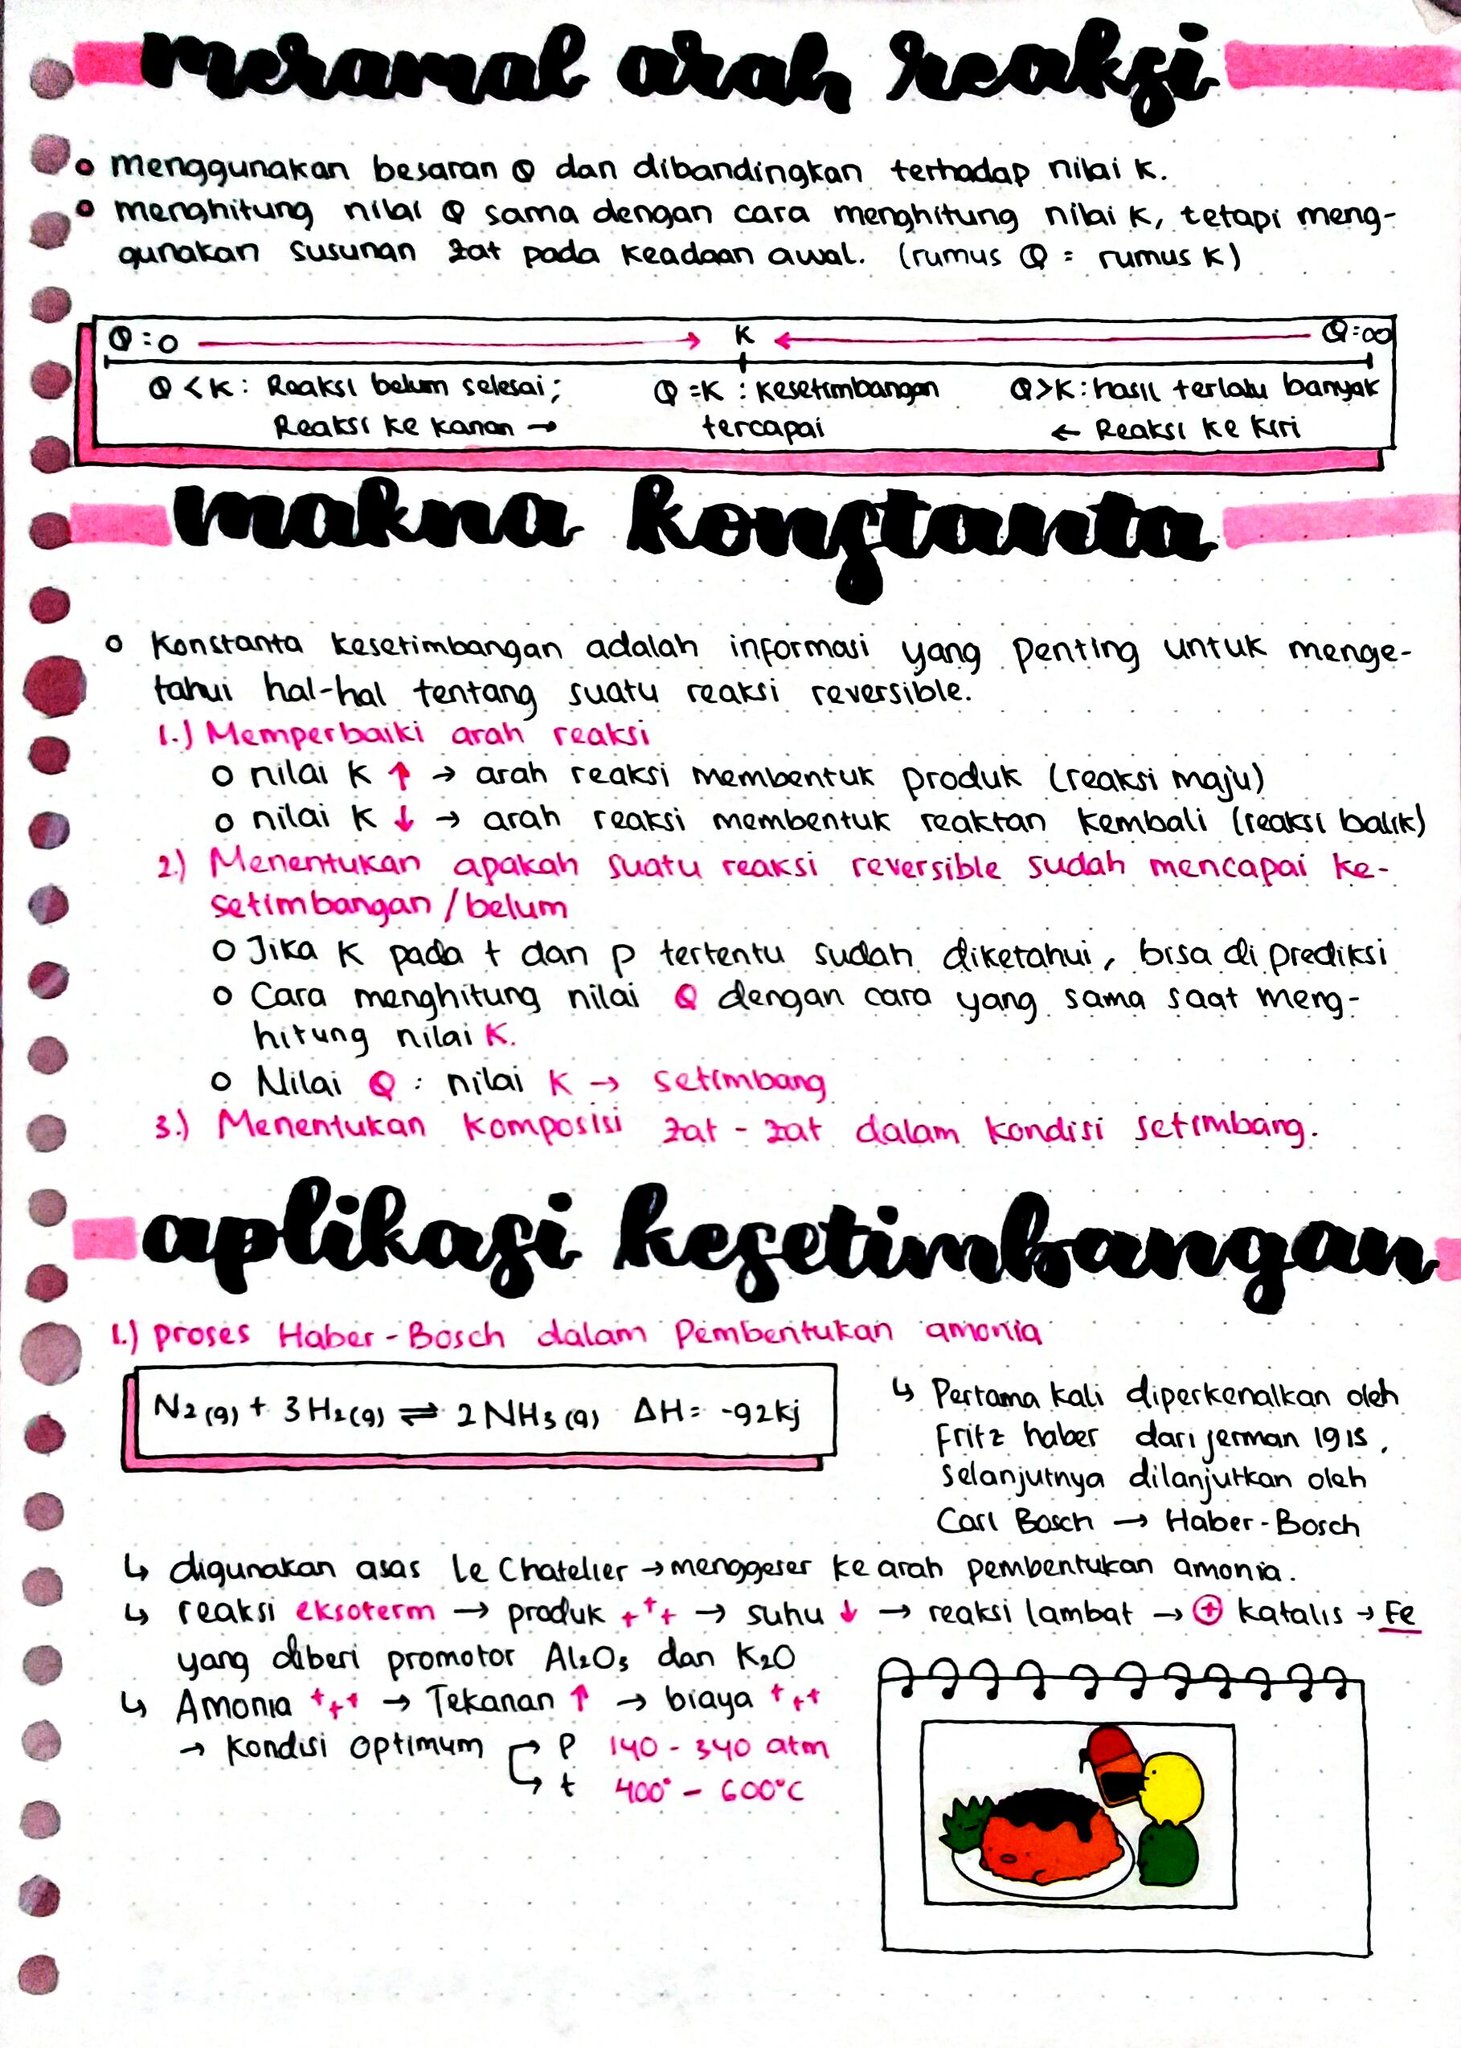 meramal arah reaksi
menggunakan besaran Q dan dibandingkan terhadap nilai K.
menghitung nilai Q sama dengan cara menghitung nilai K, tetapi meng-
gunakan susunan zat pada keadaan awal. (rumus Q = rumus K)
Q = 0 → K ← Q = ∞
Q < K : Reaksi belum selesai; Q = K : Kesetimbangan Q > K : hasil terlalu banyak
Reaksi ke kanan → tercapai ← Reaksi ke kiri
makna konstanta
Konstanta kesetimbangan adalah informasi yang penting untuk menge-
tahui hal-hal tentang suatu reaksi reversible.
1.) Memperbaiki arah reaksi
nilai K ↑ → arah reaksi membentuk produk (reaksi maju)
nilai K ↓ → arah reaksi membentuk reaktan kembali (reaksi balik)
2.) Menentukan apakah suatu reaksi reversible sudah mencapai ke-
setimbangan / belum
Jika K pada t dan p tertentu sudah diketahui, bisa di prediksi
Cara menghitung nilai Q dengan cara yang sama saat meng-
hitung nilai K.
Nilai Q : nilai K → setimbang
3.) Menentukan komposisi zat - zat dalam kondisi setimbang.
aplikasi kesetimbangan
1.) Proses Haber - Bosch dalam Pembentukan amonia
N2 (g) + 3 H2 (g) ⇌ 2 NH3 (g) ΔH = -92 kj
↳ Pertama kali diperkenalkan oleh
Fritz haber dari jerman 1915,
selanjutnya dilanjutkan oleh
Carl Bosch → Haber - Bosch
↳ digunakan asas Le Chatelier → menggeser ke arah pembentukan amonia.
↳ reaksi eksoterm → produk +++ → suhu ↓ → reaksi lambat → ⊕ katalis → Fe
yang diberi promotor Al2O3 dan K2O
↳ Amonia +++ → Tekanan ↑ → biaya +++
→ kondisi optimum → P 140 - 340 atm
→ t 400° - 600°C